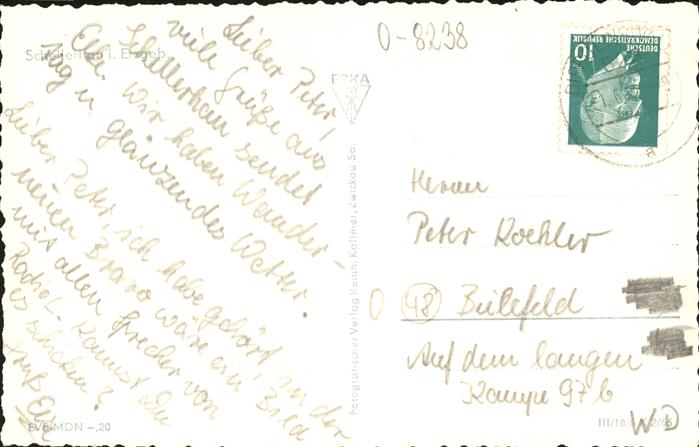 Schellerhau i. Erzgeb.
Lieber Peter,
viele Grüße aus
Schellerhau sendet
Elli. Wir haben Wander-
tag u. glänzendes Wetter.
Lieber Peter, ich habe gehört, in der
neuen Bravo wäre ein Bild
mit allen Sprecher von
Radio L. Kannst Du
es schicken?
Gruß Elli
EVP MDN -,20
0-8238
ERKA
Fotografischer Verlag Reinh. Kallmer, Zwickau Sa.
10
DEUTSCHE
DEMOKRATISCHE REPUBLIK
Herrn
Peter Koehler
(48) Bielefeld
Auf dem langen
Kampe 97b
WD
III/18/6